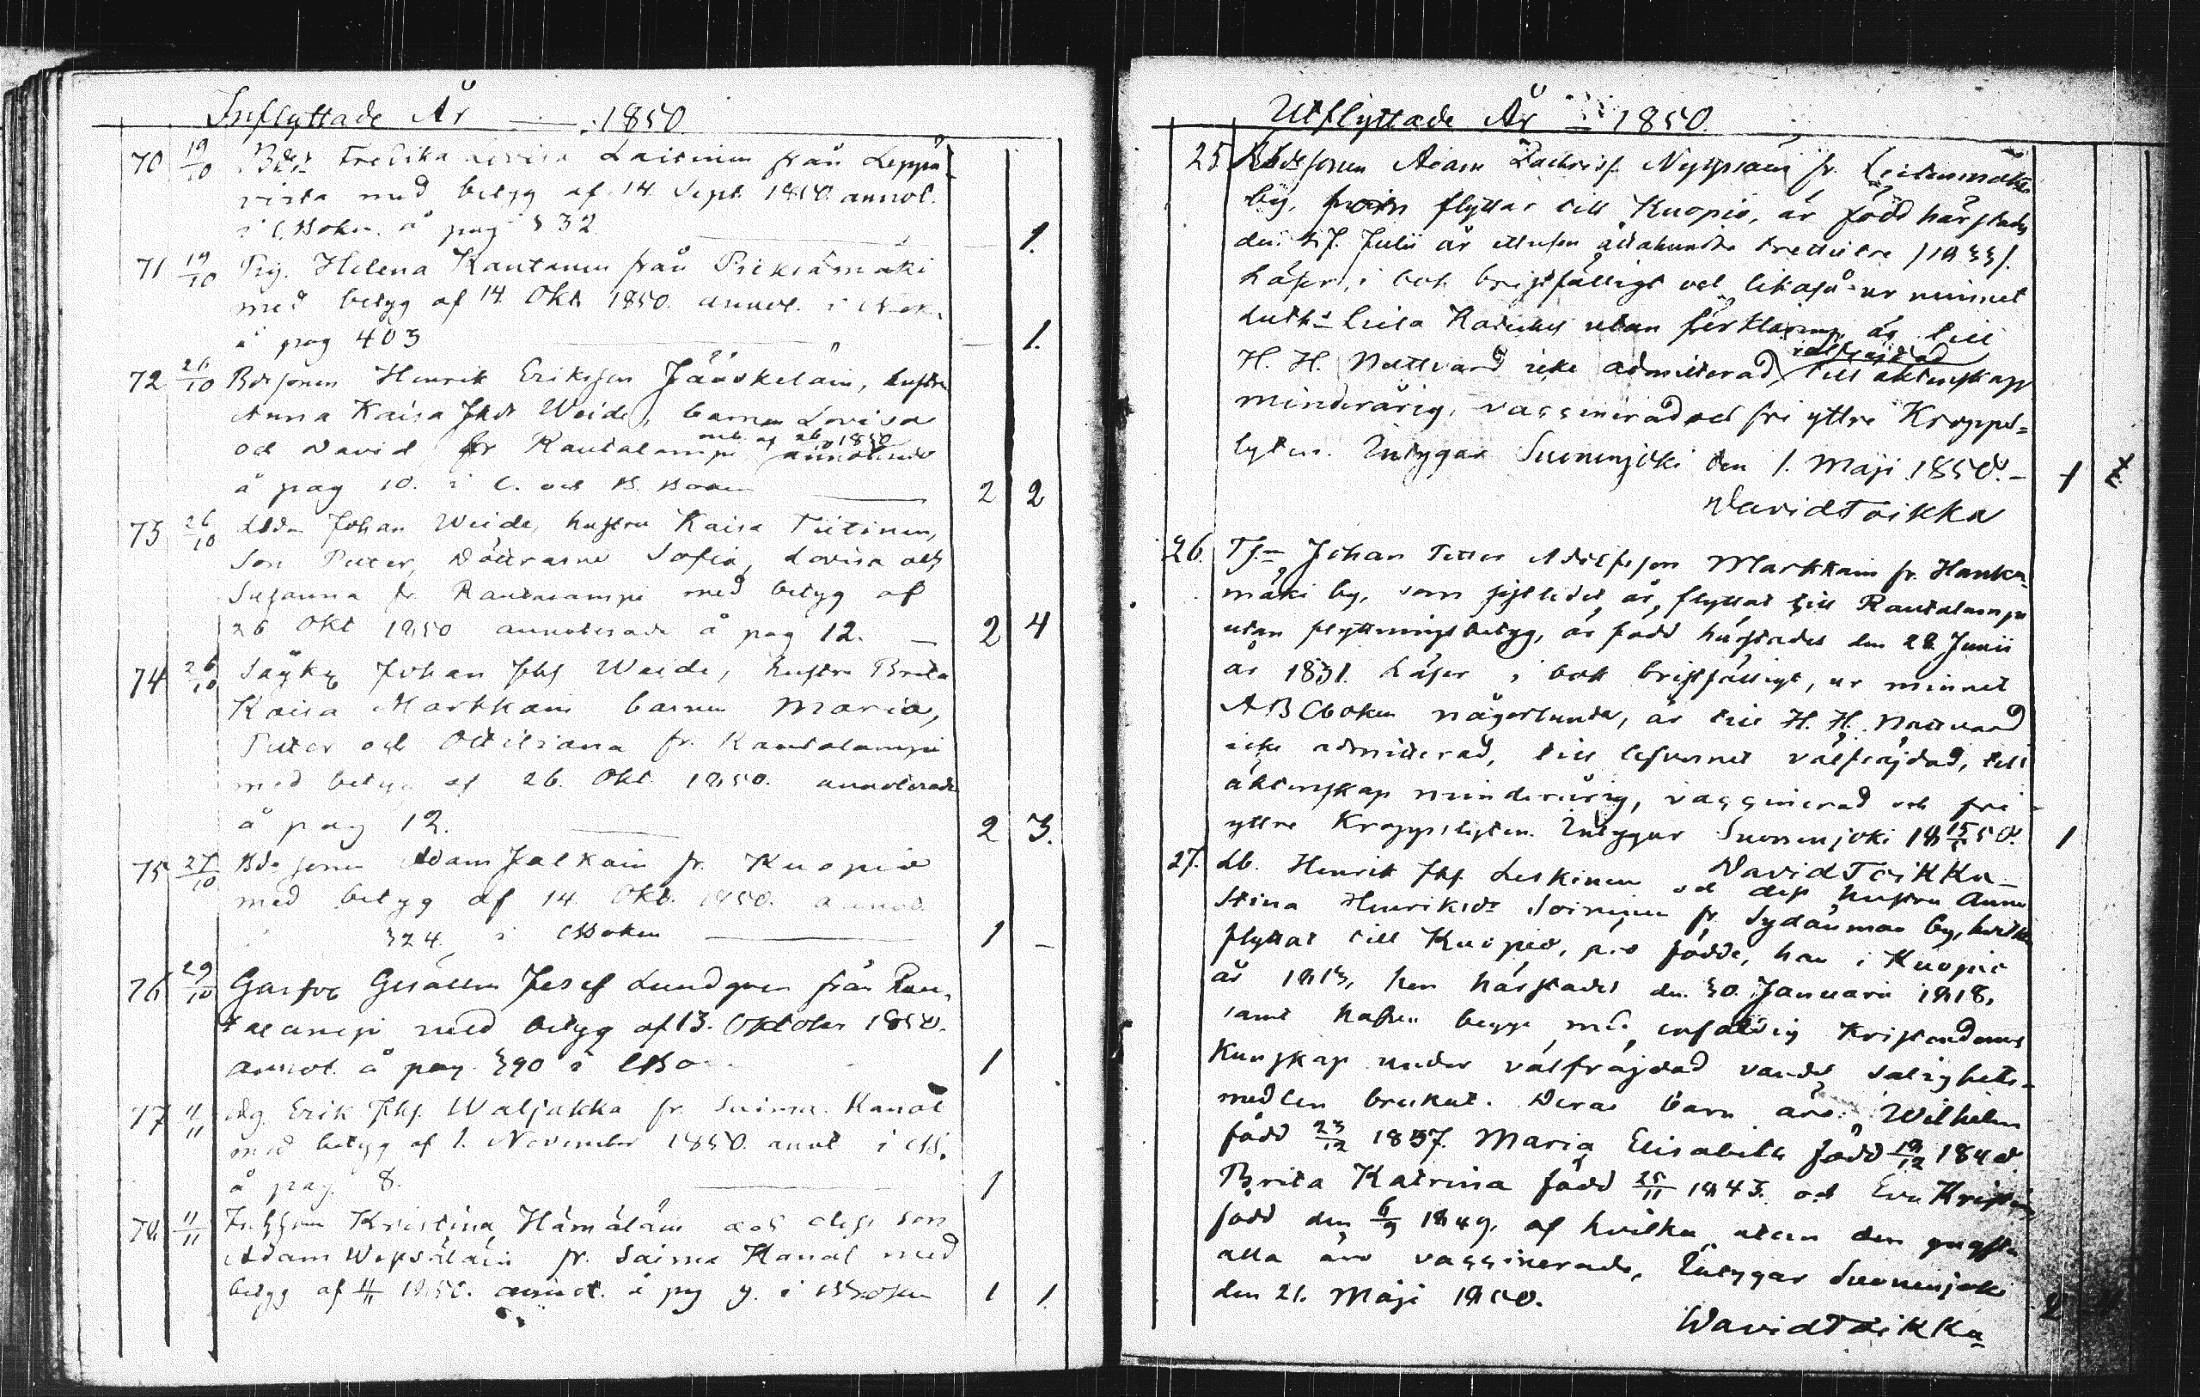 Inflyttade År 1850
70 19/10 Lovisa Laitinen från Leppä-
virta med betyg af 14 Sept. 1850. annot.
å pag 332. 1.
71 19/10 Pig. Helena Kautanen från Pieksämäki
med betyg af 14 Okt 1850. annot. i
å pag 403 1.
72 26/10 Bdesonen Henrik Eriksson Jääskeläin, hustru
Anna Kaisa Weide, barnen Lovisa
och David fr Rautalampi annoterade
å pag 10. i C. och B. Boken 2 2
73 26/10 Johan Weide, hustru Kaisa Tiitinen,
Son Petter, Döttrarne Sofia, Lovisa och
Susanna fr. Rautalampi med betyg af
26 Okt 1850 annoterade å pag 12. 2 4
74 26/10 Johan Weide, hustru Brita
Kaisa Markkain barnen Maria,
Petter och Ottiliana fr. Rautalampi
med betyg af 26. Okt. 1850. annoterade
å pag 12. 2 3.
75 27/10 Bdesonen Adam Jalkain fr. Kuopio
med betyg af 14. Okt. 1850. annot.
324. i CBoken 1 -
76 29/10 Josef Lundgren från Rau-
talampi med betyg af 13. Oktober 1850.
annot. å pag. 390 i 1
77 4/11 Erik Waljakka fr. Saima Kanal
med betyg af 1. November 1850. annot i
å pag. 8. 1
78. 11/11 Kristina Hämäläin och dess son
Adam fr. Saima Kanal med
betyg af 1850. annot. å pag 9. i 1 1.
Utflyttade År 1850.
25 Bdesonen Adam Nyyssäin fr.
by, som flyttar till Kuopio, är född härstädes
den 27. Julii år ettusen åttahundra trettiotre /1833/.
Läser i bok bristfälligt och likaså ur minnet
Luth:s Lilla Kateches utan förklaring, är till
H. H. Nattvard icke admitterad, till äktenskapp
minderårig, vaccinerad och fri yttre Kropps-
lyten. Intygar Suonenjoki den 1. Maji 1850. 1
David Toikka
26. Johan Petter Adolfsson Markkain fr. Hanka-
mäki by, som sistlidet år, flyttat till Rautalampi
utan flyttningsbetyg, är född härstädes den 28 Junii
år 1831. Läser i bok bristfälligt, ur minnet
ABCboken någorlunda, är till H. H. Nattvard
icke admitterad, till lefvernet välfräjdad, till
äktenskap minderårig, vaccinerad och fri
yttre Kroppslyten. Intygar Suonenjoki 18 15/5 50. 1
David Toikka
27. Henrik Leskinen och dess hustru Anna
Stina Henriksdr Soininen fr. Sydänmaa by, hvilka
flyttat till Kuopio, äro födde, han i Kuopio
år 1813, hon härstädes den 30. Januarii 1818,
samt hafva begge med enfaldig Kristendoms
Kunskap under välfräjdad vandel salighets-
medlen brukat. Deras barn äro: Wilhelm
född 23/12 1837. Maria Elisabeth född 1840.
Brita Katrina född 25/11 1843. och Eva Kristina
född den 6/9 1849. af hvilka utom den yngsta
alla äro vaccinerade, Intygar Suonenjoki
den 21. Maji 1850.
David Toikka